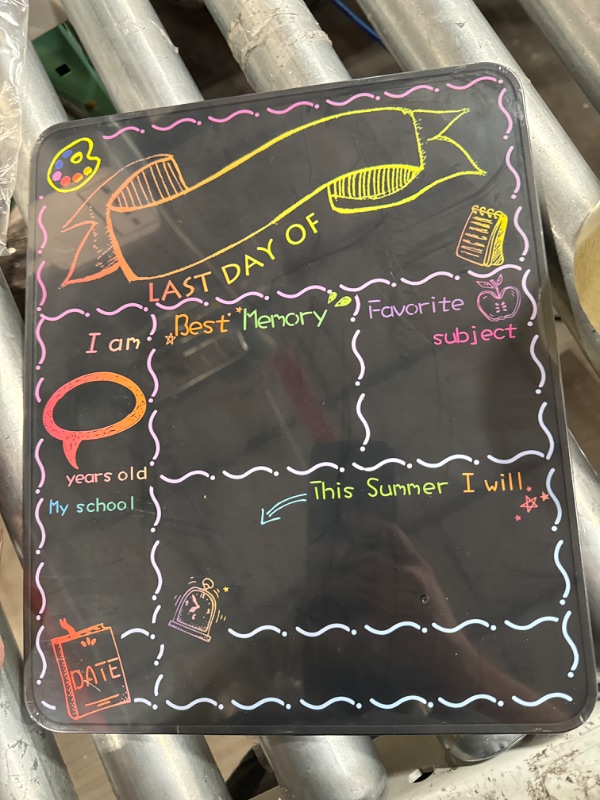 LAST DAY OF
I am
Best Memory
Favorite
subject
years old
My school
This Summer I will
DATE